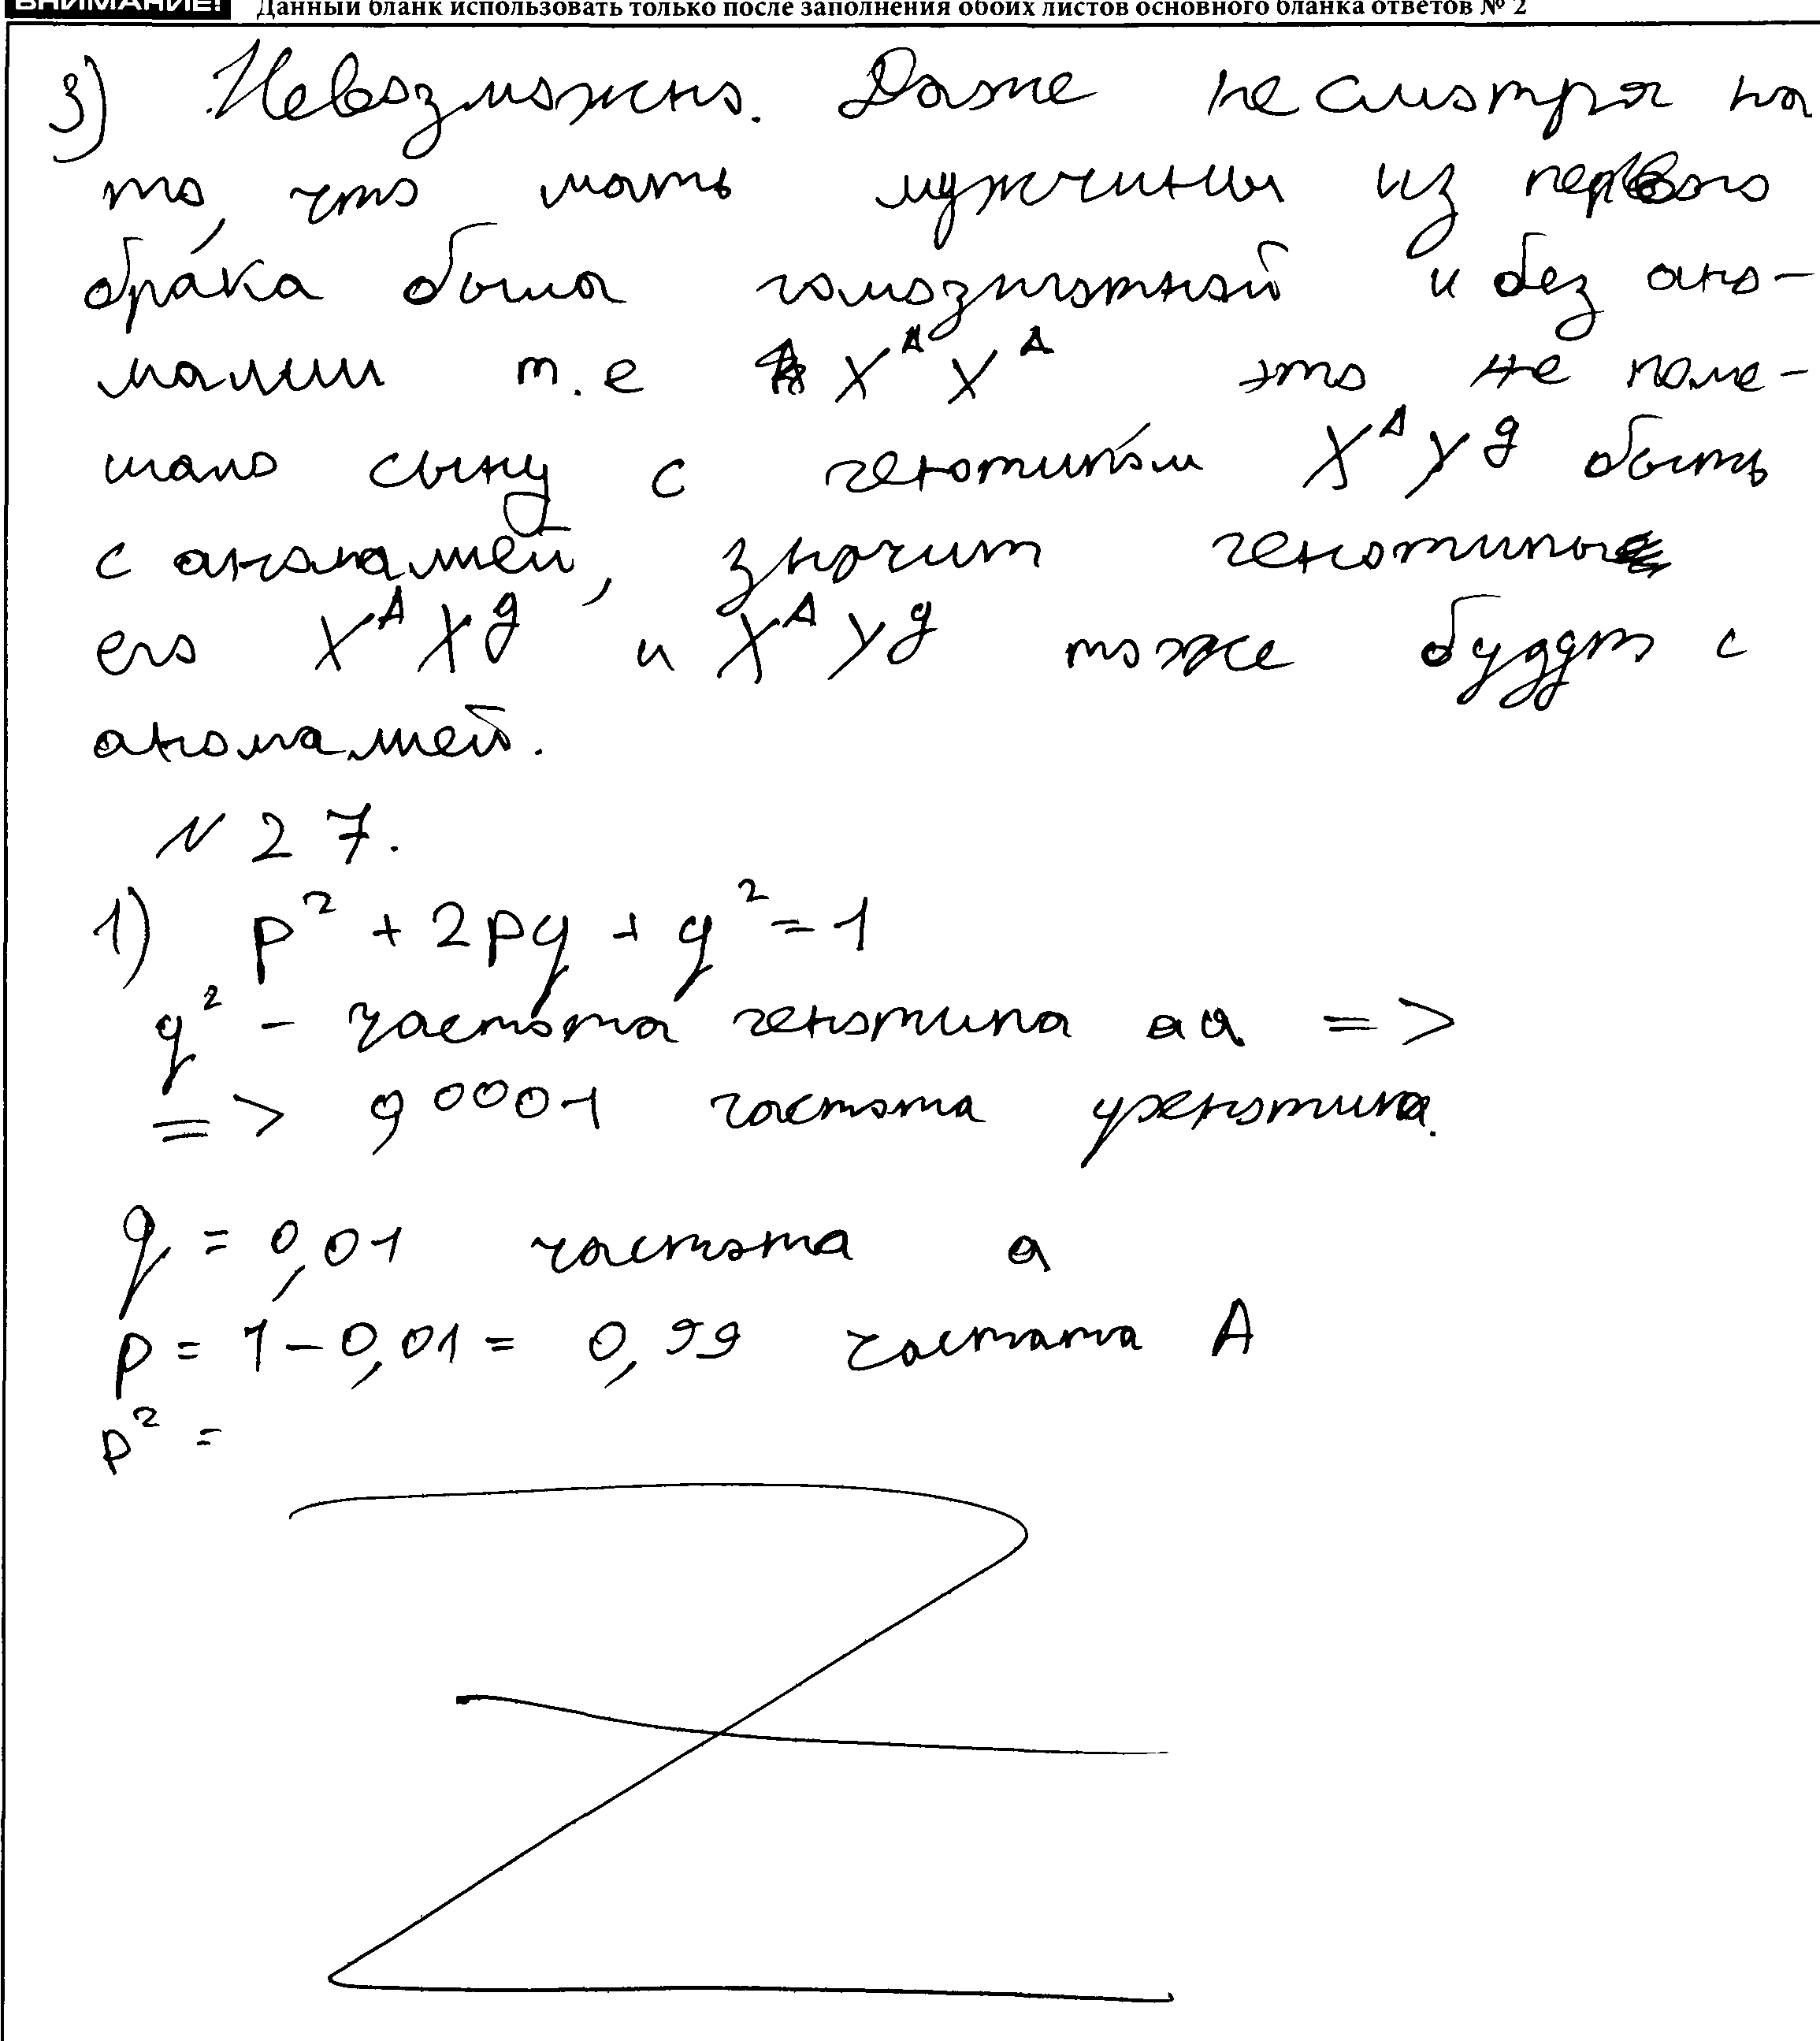 ВНИМАНИЕ! Данный бланк использовать только после заполнения обоих листов основного бланка ответов № 2
3) Невозможно. Даже несмотря на
то, что мать мужчины из первого
брака была гомозиготной и без ано-
малии т.е X^A X^A это не поме-
шало сыну с генотипом X^A Y^g быть
с аномалией, значит генотипы
его X^A X^g и X^A Y^g тоже будут с
аномалией.
N 27.
1) p² + 2pq + q² = 1
q² - частота генотипа aa =>
=> 0,0001 частота фенотипа.
q = 0,01 частота a
p = 1 - 0,01 = 0,99 частота A
p² =
Z